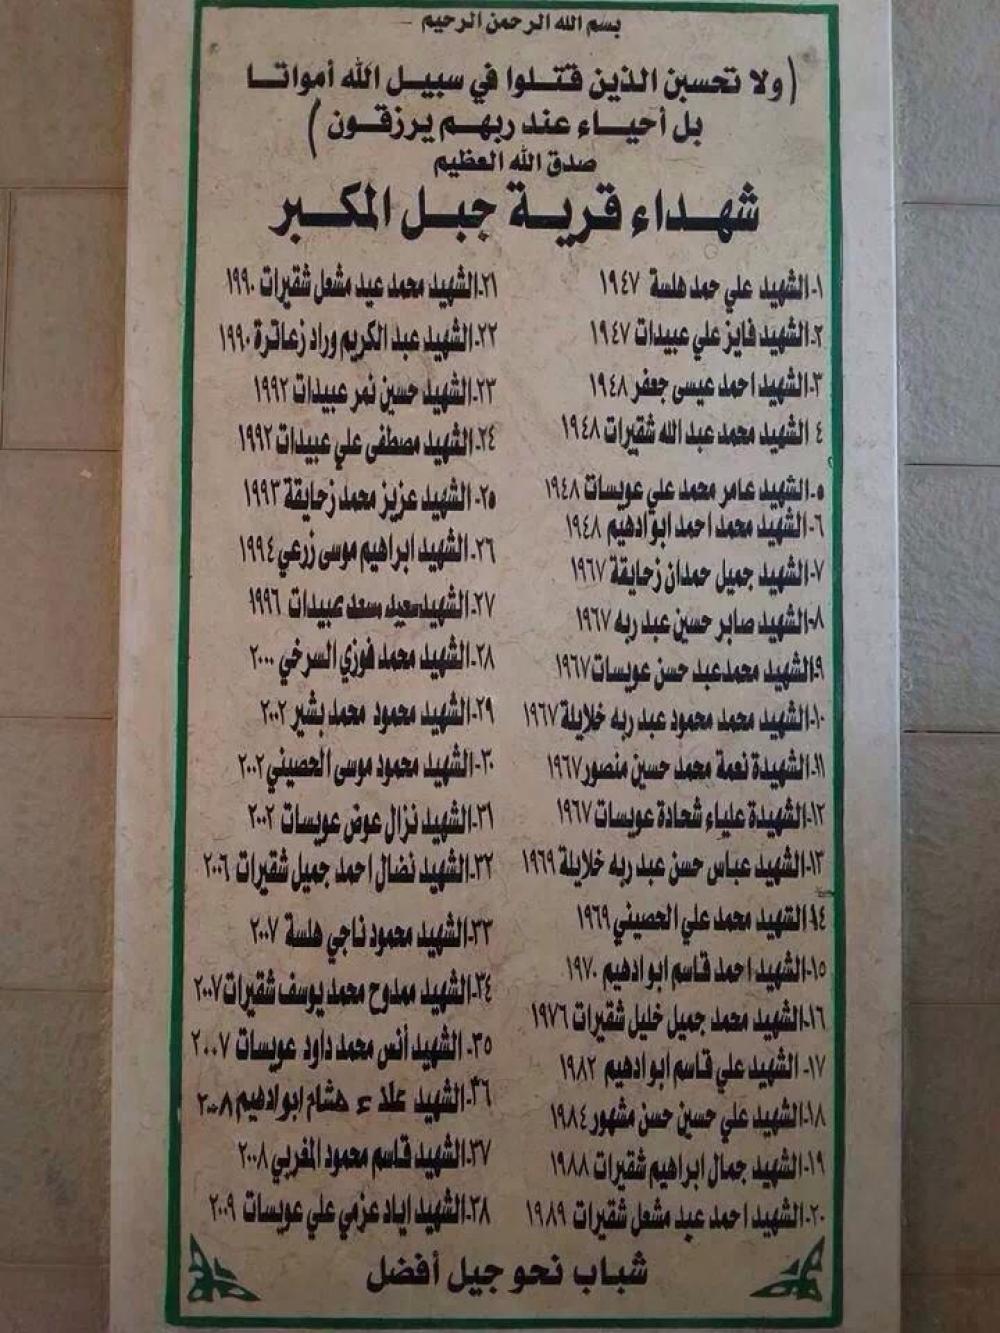 بسم الله الرحمن الرحيم
(ولا تحسبن الذين قتلوا في سبيل الله أمواتا
بل أحياء عند ربهم يرزقون)
صدق الله العظيم
شهداء قرية جبل المكبر
١-الشهيد علي حمد هلسة ١٩٤٧
٢-الشهيد فايز علي عبيدات ١٩٤٧
٣-الشهيد احمد عيسى جعفر ١٩٤٨
٤ الشهيد محمد عبد الله شقيرات ١٩٤٨
٥-الشهيد عامر محمد علي عويسات ١٩٤٨
٦-الشهيد محمد احمد ابو ادهيم ١٩٤٨
٧-الشهيد جميل حمدان زحايقة ١٩٦٧
٨-الشهيد صابر حسين عبد ربه ١٩٦٧
٩-الشهيد محمدعبد حسن عويسات ١٩٦٧
١٠-الشهيد محمد محمود عبد ربه خلايلة ١٩٦٧
١١-الشهيدة نعمة محمد حسين منصور ١٩٦٧
١٢-الشهيدة علياء شحادة عويسات ١٩٦٧
١٣-الشهيد عباس حسن عبد ربه خلايلة ١٩٦٩
١٤-الشهيد محمد علي الحصيني ١٩٦٩
١٥-الشهيد احمد قاسم ابو ادهيم ١٩٧٠
١٦-الشهيد محمد جميل خليل شقيرات ١٩٧٦
١٧-الشهيد علي قاسم ابو ادهيم ١٩٨٢
١٨-الشهيد علي حسين حسن مشهور ١٩٨٤
١٩-الشهيد جمال ابراهيم شقيرات ١٩٨٨
٢٠-الشهيد احمد عبد مشعل شقيرات ١٩٨٩
٢١-الشهيد محمد عيد مشعل شقيرات ١٩٩٠
٢٢-الشهيد عبد الكريم وراد زعاترة ١٩٩٠
٢٣-الشهيد حسين نمر عبيدات ١٩٩٢
٢٤-الشهيد مصطفى علي عبيدات ١٩٩٢
٢٥-الشهيد عزيز محمد زحايقة ١٩٩٣
٢٦-الشهيد ابراهيم موسى زرعي ١٩٩٤
٢٧-الشهيد سعيد سعد عبيدات ١٩٩٦
٢٨-الشهيد محمد فوزي السرخي ٢٠٠٠
٢٩-الشهيد محمود محمد بشير ٢٠٠٢
٣٠-الشهيد محمود موسى الحصيني ٢٠٠٢
٣١-الشهيد نزال عوض عويسات ٢٠٠٢
٣٢-الشهيد نضال احمد جميل شقيرات ٢٠٠٦
٣٣-الشهيد محمود ناجي هلسة ٢٠٠٧
٣٤-الشهيد ممدوح محمد يوسف شقيرات ٢٠٠٧
٣٥-الشهيد أنس محمد داود عويسات ٢٠٠٧
٣٦-الشهيد علاء هشام ابو ادهيم ٢٠٠٨
٣٧-الشهيد قاسم محمود المغربي ٢٠٠٨
٣٨-الشهيد اياد عزمي علي عويسات ٢٠٠٩
شباب نحو جيل أفضل